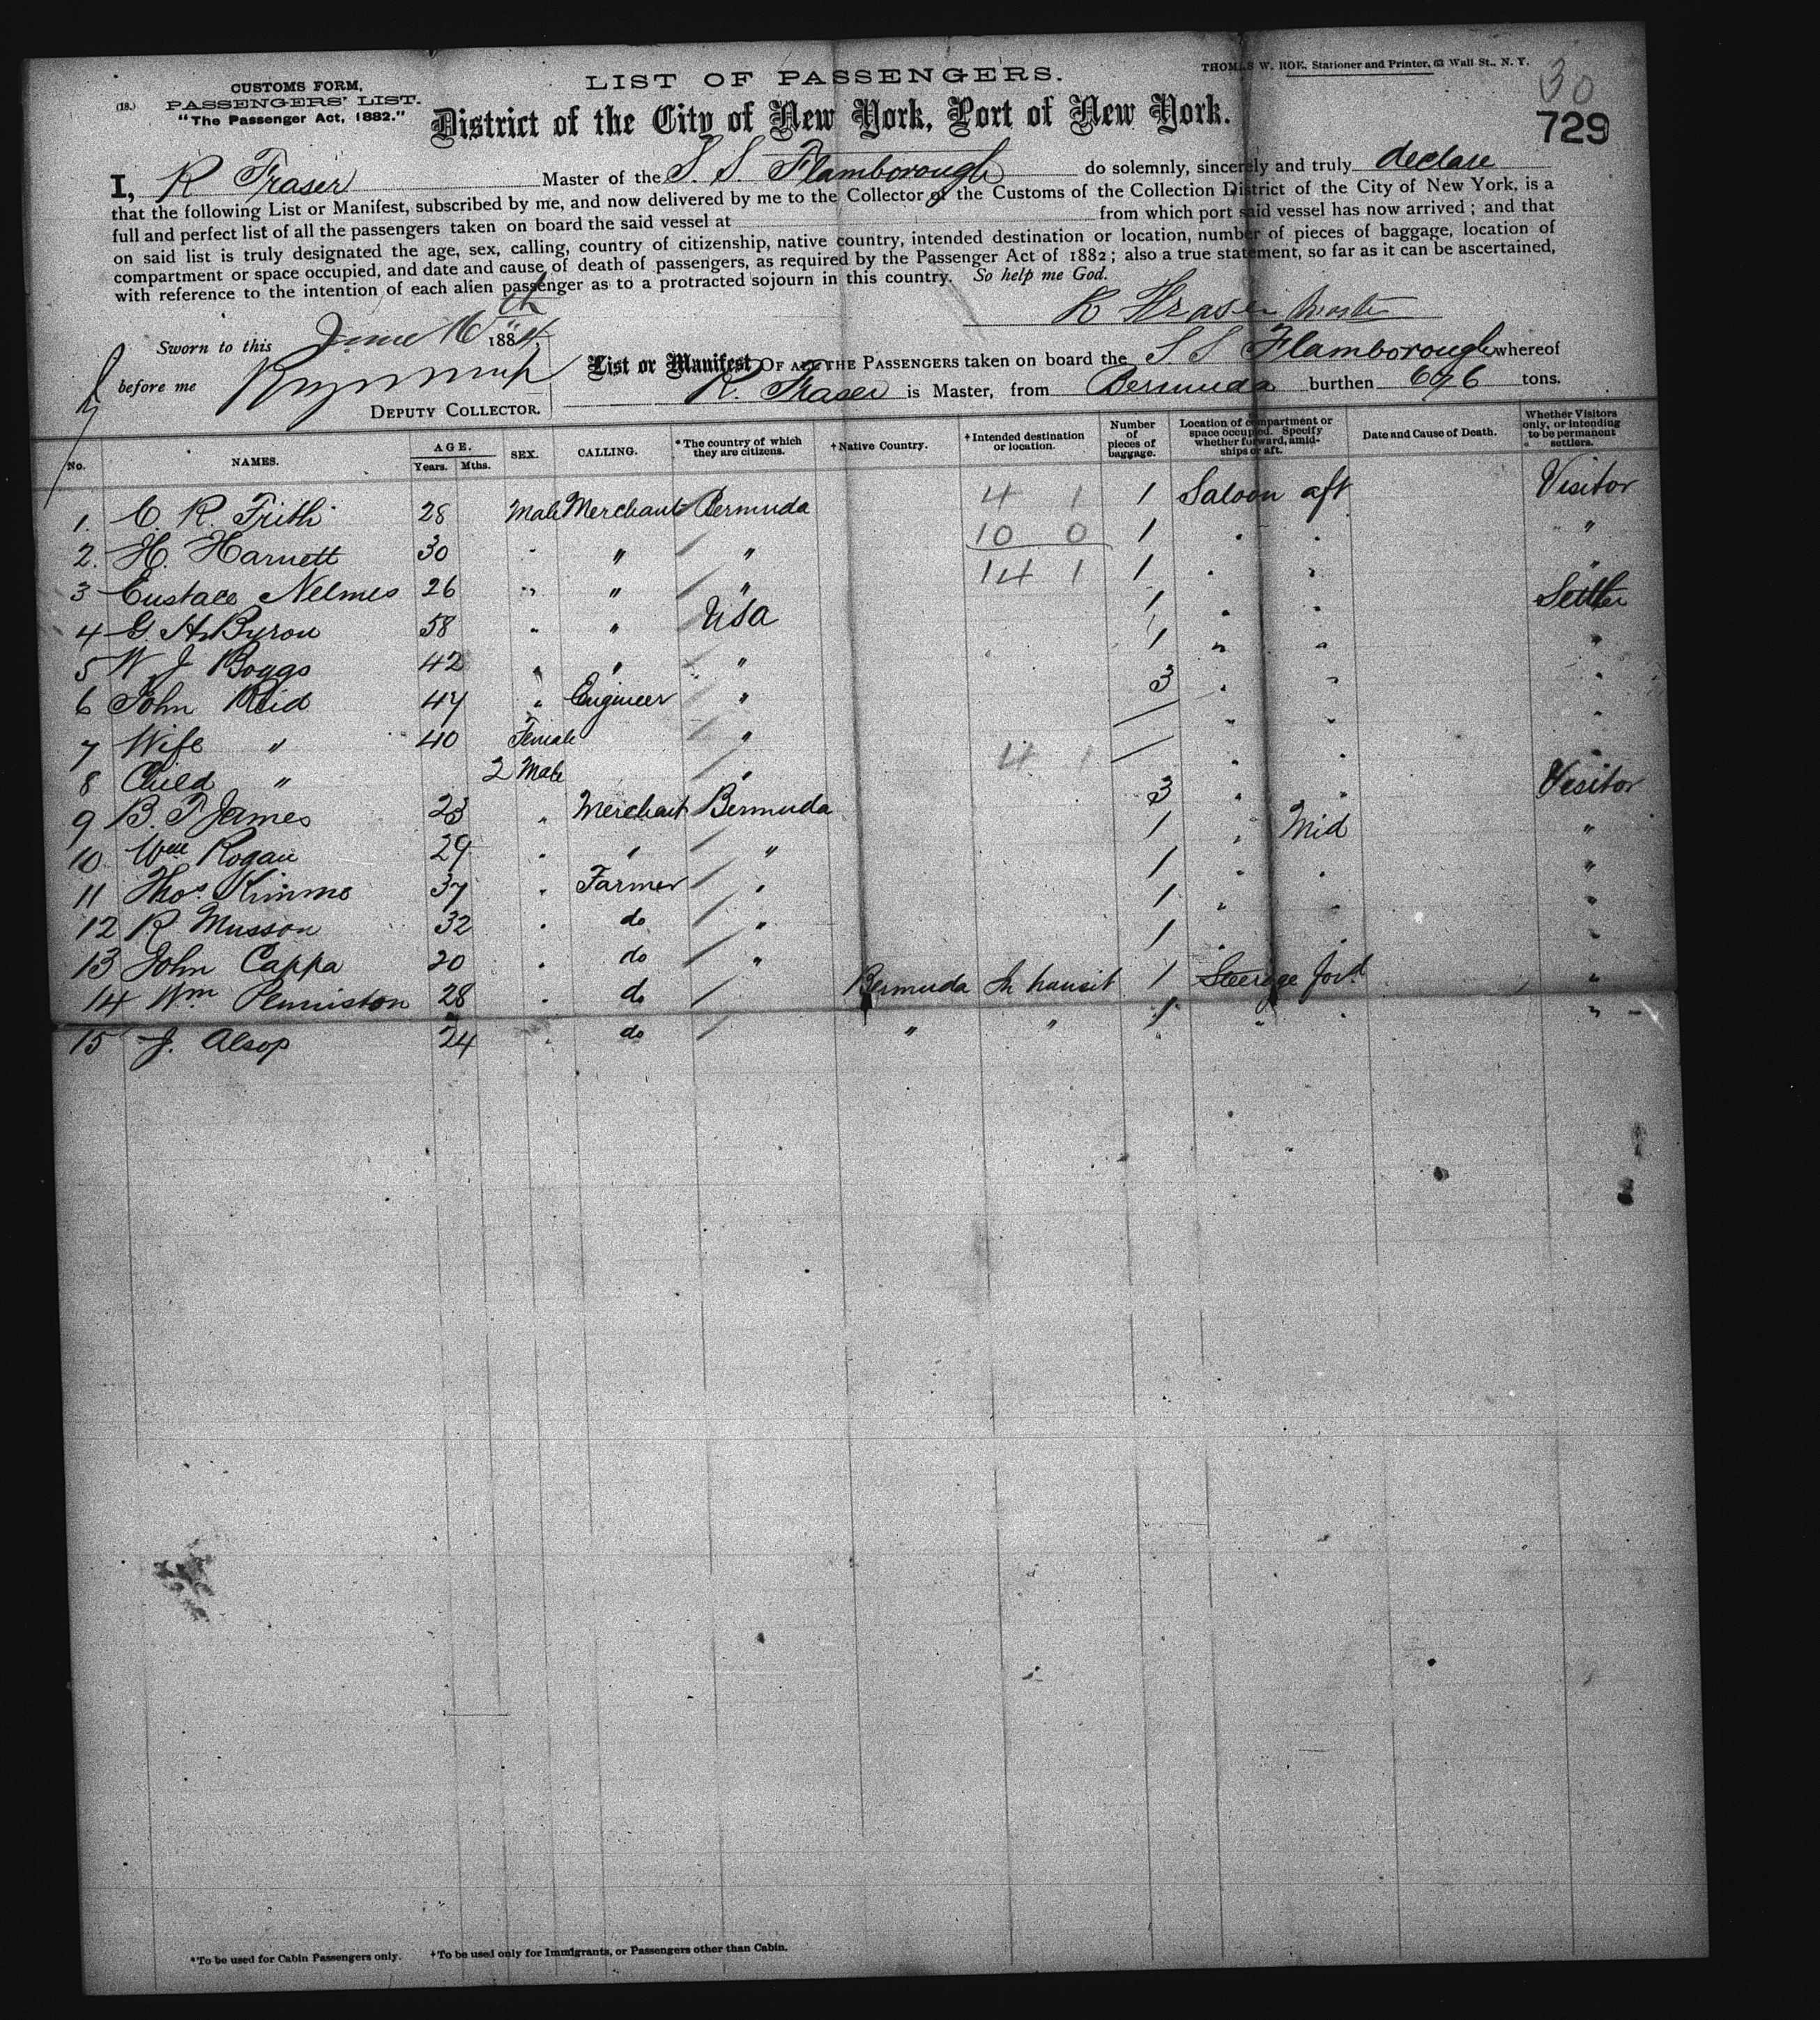 CUSTOMS FORM,
(18.) PASSENGERS' LIST.
"The Passenger Act, 1882."
LIST OF PASSENGERS.
THOMAS W. ROE, Stationer and Printer, 63 Wall St., N. Y.
30
District of the City of New York, Port of New York.
729
I, R Fraser Master of the S. S. Flamborough do solemnly, sincerely and truly declare
that the following List or Manifest, subscribed by me, and now delivered by me to the Collector of the Customs of the Collection District of the City of New York, is a
full and perfect list of all the passengers taken on board the said vessel at from which port said vessel has now arrived; and that
on said list is truly designated the age, sex, calling, country of citizenship, native country, intended destination or location, number of pieces of baggage, location of
compartment or space occupied, and date and cause of death of passengers, as required by the Passenger Act of 1882; also a true statement, so far as it can be ascertained,
with reference to the intention of each alien passenger as to a protracted sojourn in this country. So help me God.
R Fraser Master
Sworn to this June 16th 1884
before me
DEPUTY COLLECTOR.
List or Manifest OF ALL THE PASSENGERS taken on board the S S Flamborough whereof
R. Fraser is Master, from Bermuda burthen 676 tons.
No. NAMES. AGE. Years. Mths. SEX. CALLING. *The country of which they are citizens. †Native Country. †Intended destination or location. Number of pieces of baggage. Location of compartment or space occupied. Specify whether forward, amidships or aft. Date and Cause of Death. Whether Visitors only, or intending to be permanent settlers.
1. C. R. Frith 28 Male Merchant Bermuda 4 1 1 Saloon aft Visitor
2. H. Harnett 30 " " " 10 0 1 " " "
3 Eustace Nelmes 26 " " " 14 1 1 " " "
4 G. H. Byron 58 " " USA 1 " " Settler
5 W J Boggs 42 " " " 1 " " "
6 John Reid 47 " Engineer " 3 " " "
7 Wife " 40 Female " / " " "
8 Child " 2 Male " 4 1 / " " "
9 B. T James 23 " Merchant Bermuda 3 " " Visitor
10 Wm Rogan 29 " " " 1 " Mid "
11 Thos Kimmo 37 " Farmer " 1 " " "
12 R Musson 32 " do " 1 " " "
13 John Cappa 20 " do " 1 " " "
14 Wm Penniston 28 " do Bermuda In transit 1 Steerage ford "
15 J. Alsop 24 " do " " 1 " " "
*To be used for Cabin Passengers only. †To be used only for Immigrants, or Passengers other than Cabin.